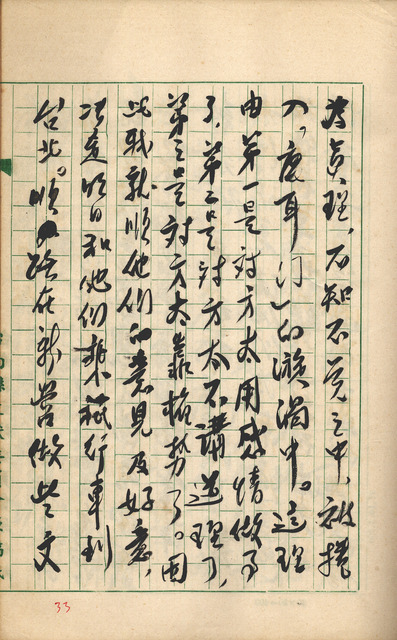 為真理,不知不覺之中,被捲
入,庭耳门一的漩渦中。這理
由第一是対方太用感情做事
了,第二是対方太不講道理了,
第三是対方太靠權勢了。因
此我就順他们的意見及好意,
決定明日和他们乘坐行車到
台北。順路在新營做些文
33